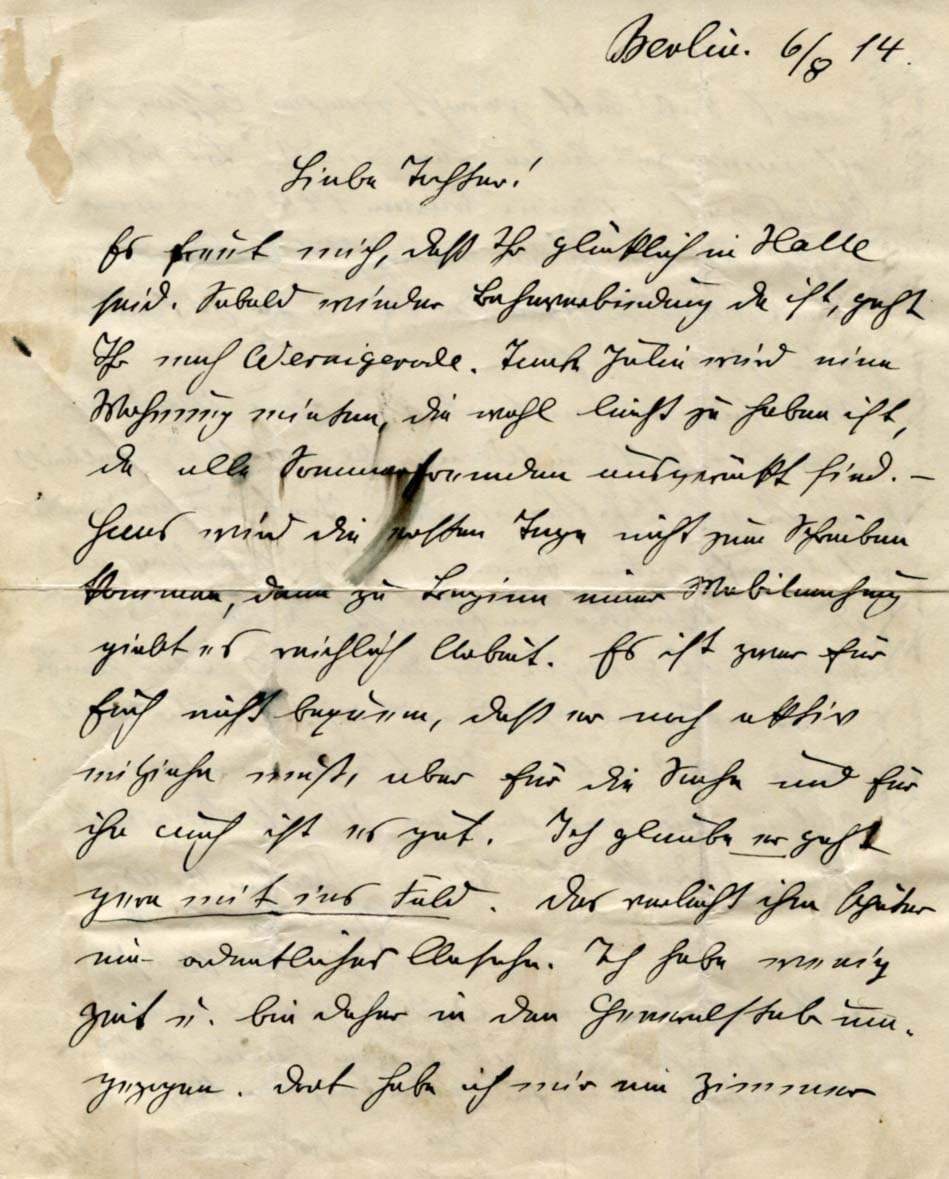 Berlin. 6/8 14.
Liebe Tochter!
Es freut mich, daß Ihr glücklich in Halle
seid. Sobald wieder Bahnverbindung da ist, geht
Ihr nach Wernigerode. Tante Julie wird eine
Wohnung mieten, die wohl leicht zu haben ist,
da alle Sommerfremden ausgerückt sind. –
Hans wird die ersten Tage nicht zum Schreiben
kommen, denn zu Beginn einer Mobilmachung
giebt es reichlich Arbeit. Es ist zwar für
Euch nicht bequem, daß er noch aktiv
mitziehn muß, aber für die Sache und für
ihn auch ist es gut. Ich glaube er geht
gern mit ins Feld. Das verleiht ihm später
ein ordentliches Ansehn. Ich habe wenig
Zeit u. bin daher in den Generalstab um-
gezogen. Dort habe ich mir ein Zimmer